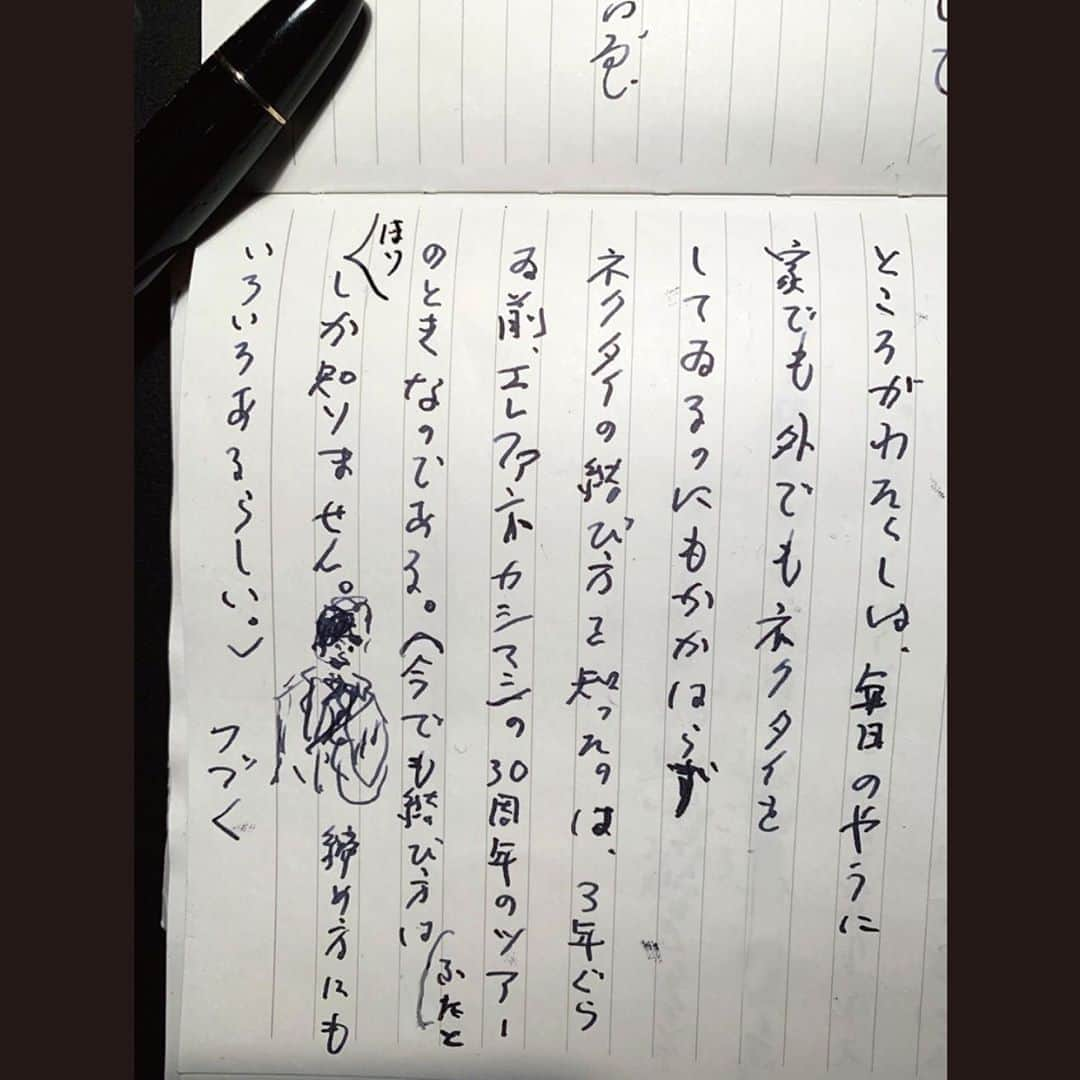 ところがわたくしは、毎日のやうに
家でも外でもネクタイを
してゐるのにもかかはらず
ネクタイの結び方を知ったのは、3年ぐら
ゐ前、エレファントカシマシの30周年のツアー
のときなのである。(今でも結び方は
ふたと
ほり
しか知りません。締め方にも
いろいろあるらしい。) つづく